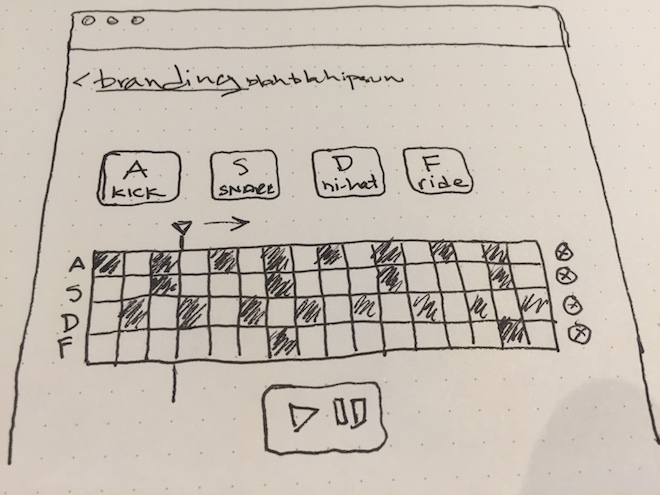 <branding blah blah ipsum
A S D F
KICK SNARE hi-hat ride
A
S
D
F